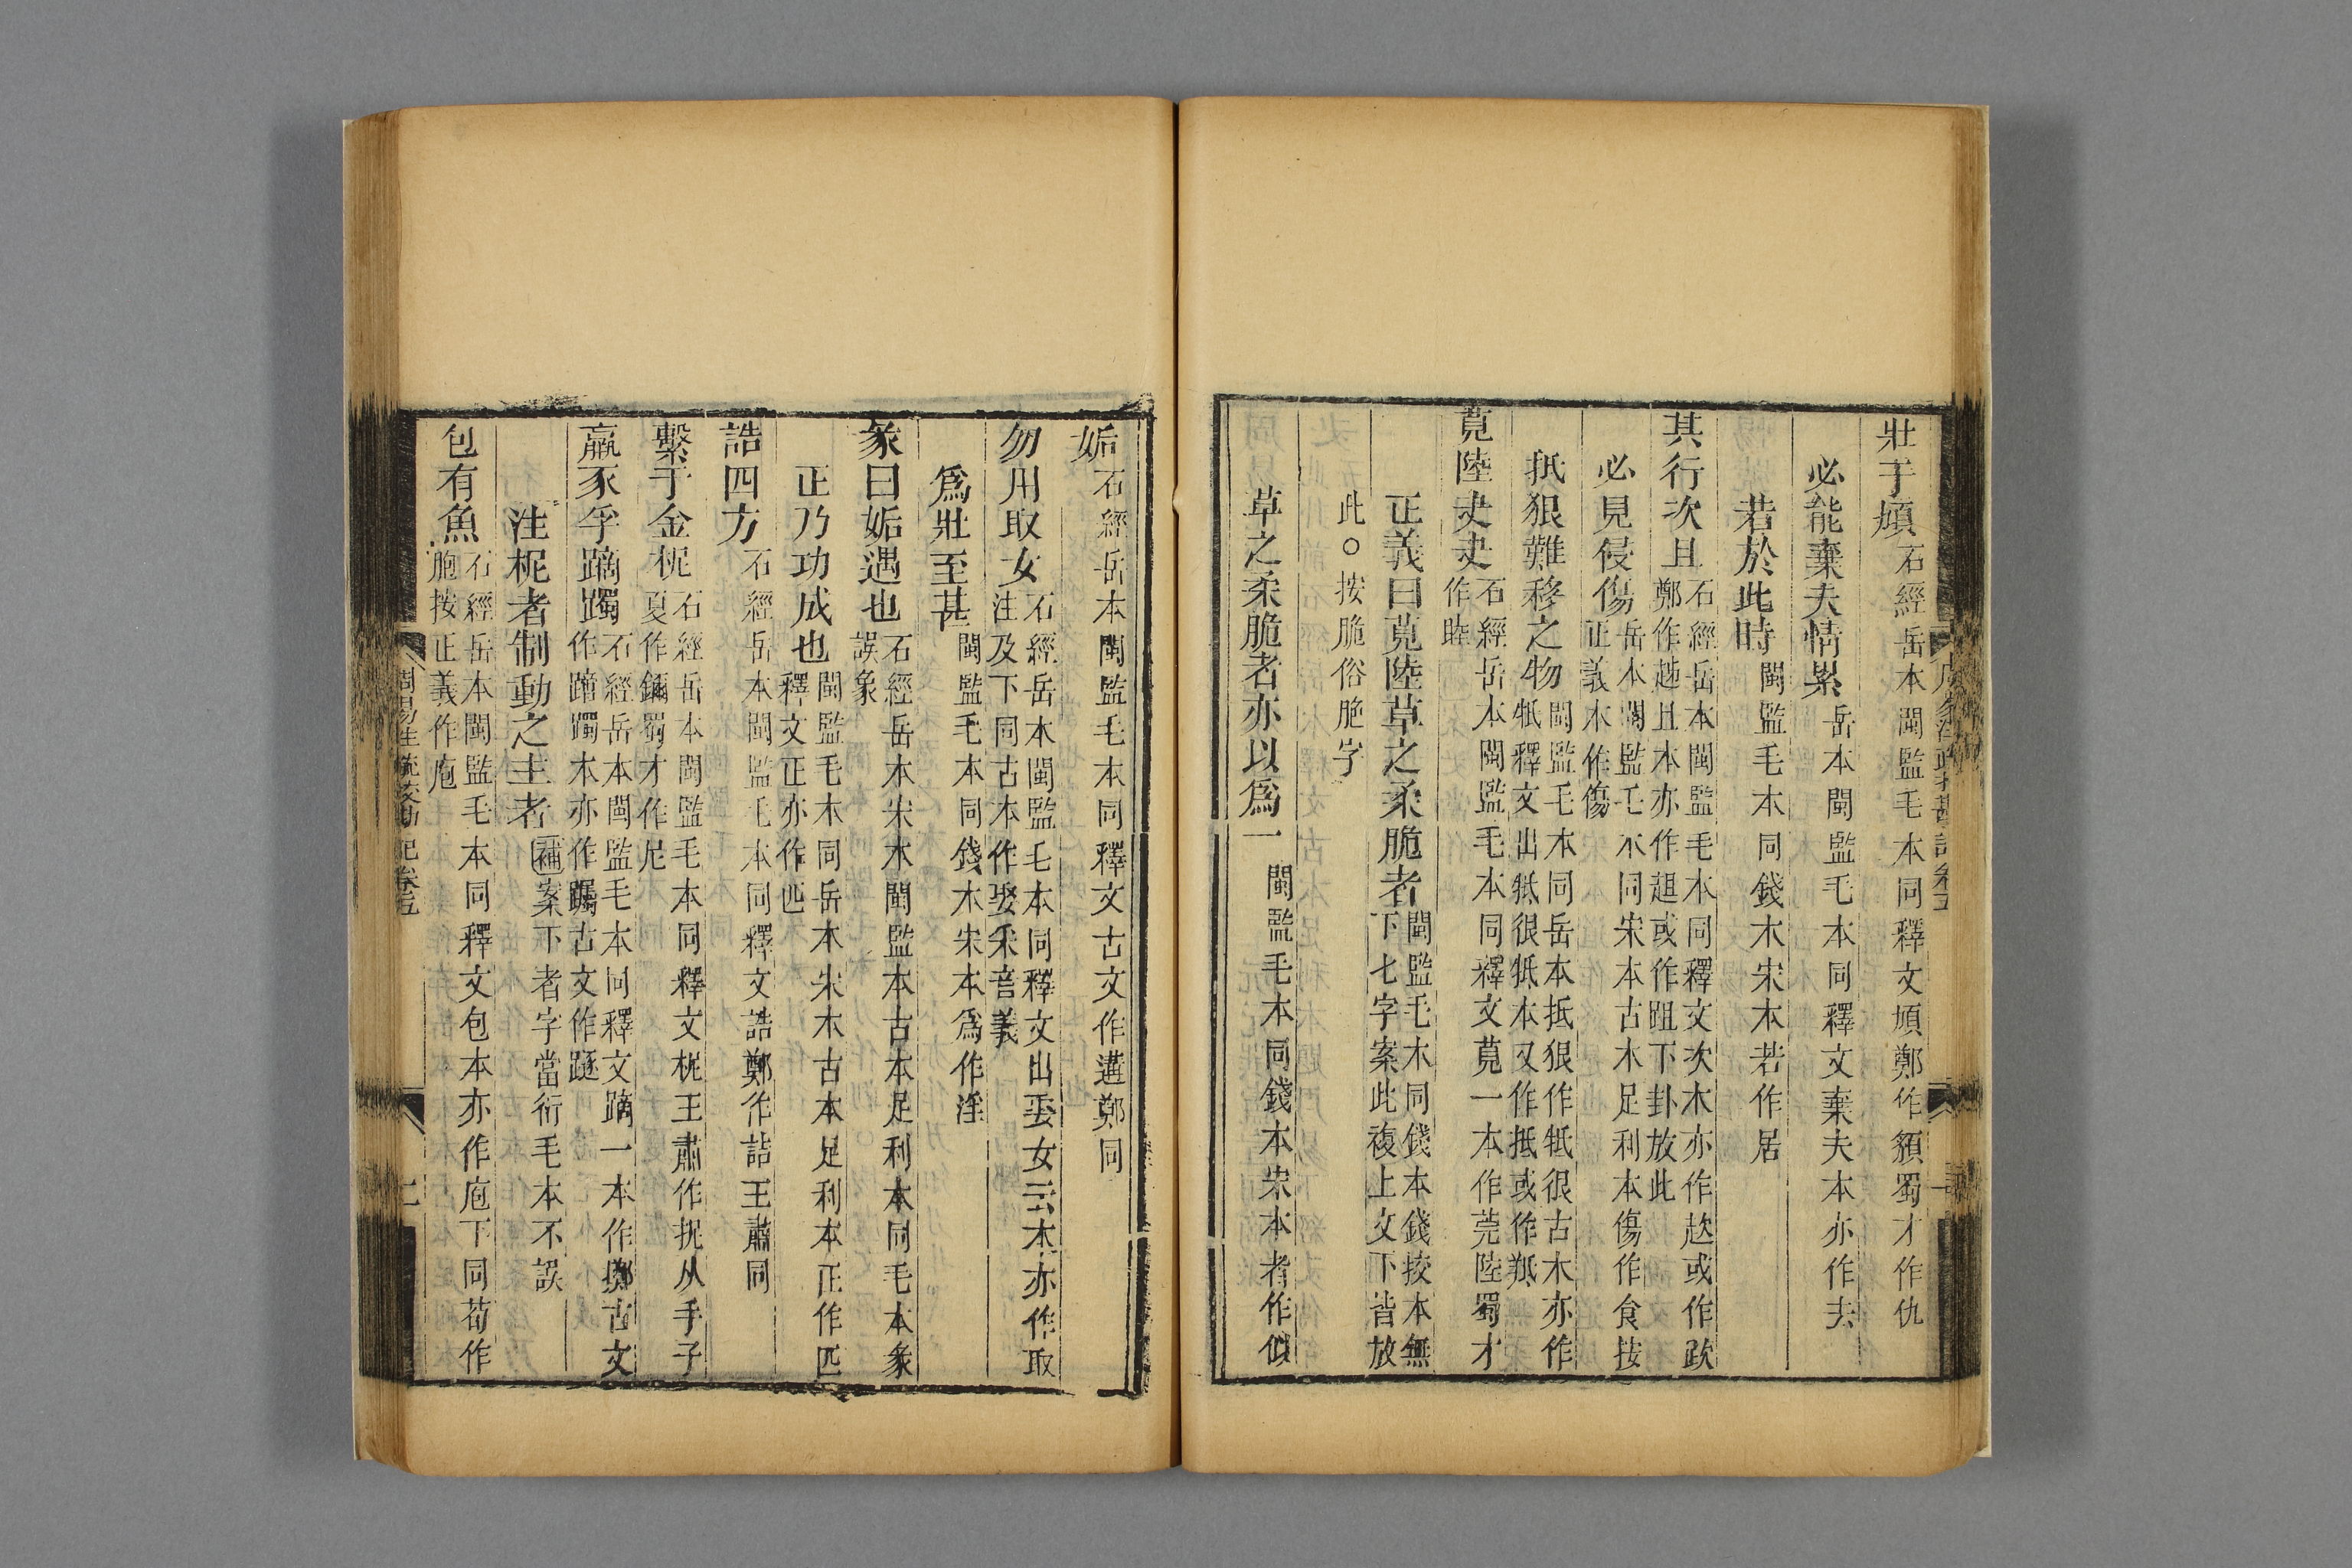 壯于頄石經岳本閩監毛本同釋文頄鄭作頯蜀才作仇
必能棄夫情累岳本閩監毛本同釋文棄夫本亦作去
若於此時閩監毛本同錢本宋本若作居
其行次且石經岳本閩監毛本同釋文次本亦作趑或作跂
鄭作趀且本亦作趄或作跙下卦放此
必見侵傷岳本閩監毛本同宋本古本足利本傷作食按
正義本作傷
抵狠難移之物閩監毛本同岳本抵狠作牴很古本亦作
牴釋文出牴很牴本又作抵或作羝
莧陸夬夬石經岳本閩監毛本同釋文莧一本作莞陸蜀才
作睦
正義曰莧陸草之柔脆者閩監毛本同錢本錢挍本無
下七字案此複上文下皆放
此○按脆俗脃字
草之柔脆者亦以為一閩監毛本同錢本宋本者作似
姤石經岳本閩監毛本同釋文古文作遘鄭同
勿用取女石經岳本閩監毛本同釋文出娶女云本亦作取
注及下同古本作娶采音義
為壯至甚閩監毛本同錢本宋本為作淫
彖曰姤遇也石經岳本宋本閩監本古本足利本同毛本彖
誤象
正乃功成也閩監毛本同岳本宋本古本足利本正作匹
釋文正亦作匹
誥四方石經岳本閩監毛本同釋文誥鄭作詰王肅同
繫于金柅石經岳本閩監毛本同釋文柅王肅作抳从手子
夏作鑈蜀才作尼
羸豕孚蹢躅石經岳本閩監毛本同釋文蹢一本作擲古文
作蹢躅本亦作躅古文作蹢
注柅者制動之主者補案下者字當衍毛本不誤
包有魚石經岳本閩監毛本同釋文包本亦作庖下同荀作
胞按正義作庖
周易注疏挍勘記卷五